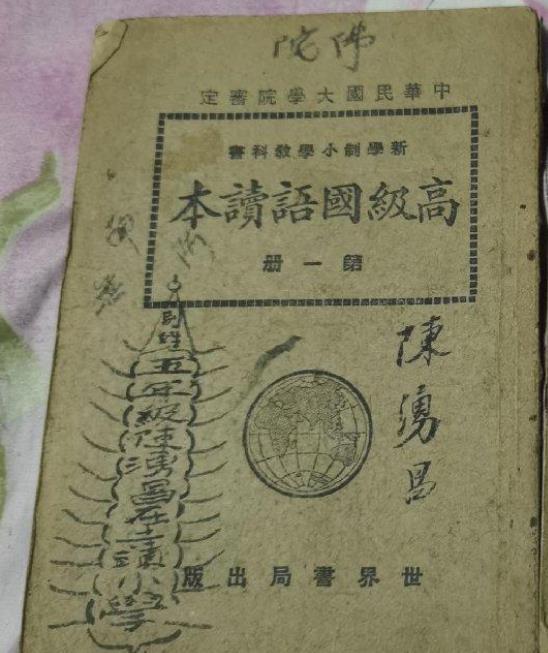 佛陀
中華民國大學院審定
新學制小學教科書
高級國語讀本
第一冊
陳湧昌
五年級陳湧昌在
小學
世界書局出版